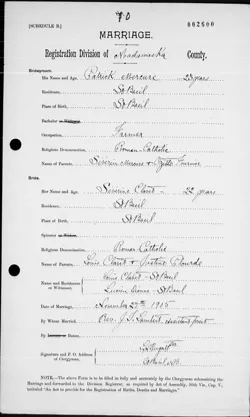 70
[SCHEDULE B.]
002600
MARRIAGE.
Registration Division of Madawaska County.
Bridegroom.
His Name and Age, Patrick Mercure 23 years
Residence, St Basil
Place of Birth, St Basil
Bachelor or Widower,
Occupation, Farmer
Religious Denomination, Roman Catholic
Name of Parents, Severin Mercure &
Bride.
Her Name and Age, Severine 22 years
Residence, St Basil
Place of Birth, St Basil
Spinster or Widow,
Religious Denomination, Roman Catholic
Name of Parents, Plourde
Name and Residence of Witnesses, St Basil
St Basil
Date of Marriage, November 29th 1915
By Whom Married, Rev. Lambert
By License or Banns,
Signature and P. O. Address of Clergyman,
St Basil N.B.
NOTE.—The above Form is to be filled in fully and accurately by the Clergyman solemnizing the
Marriage and forwarded to the Division Registrar, as required by Act of Assembly, 50th Vic., Cap. 5,
intituled "An Act to provide for the Registration of Births, Deaths and Marriages."